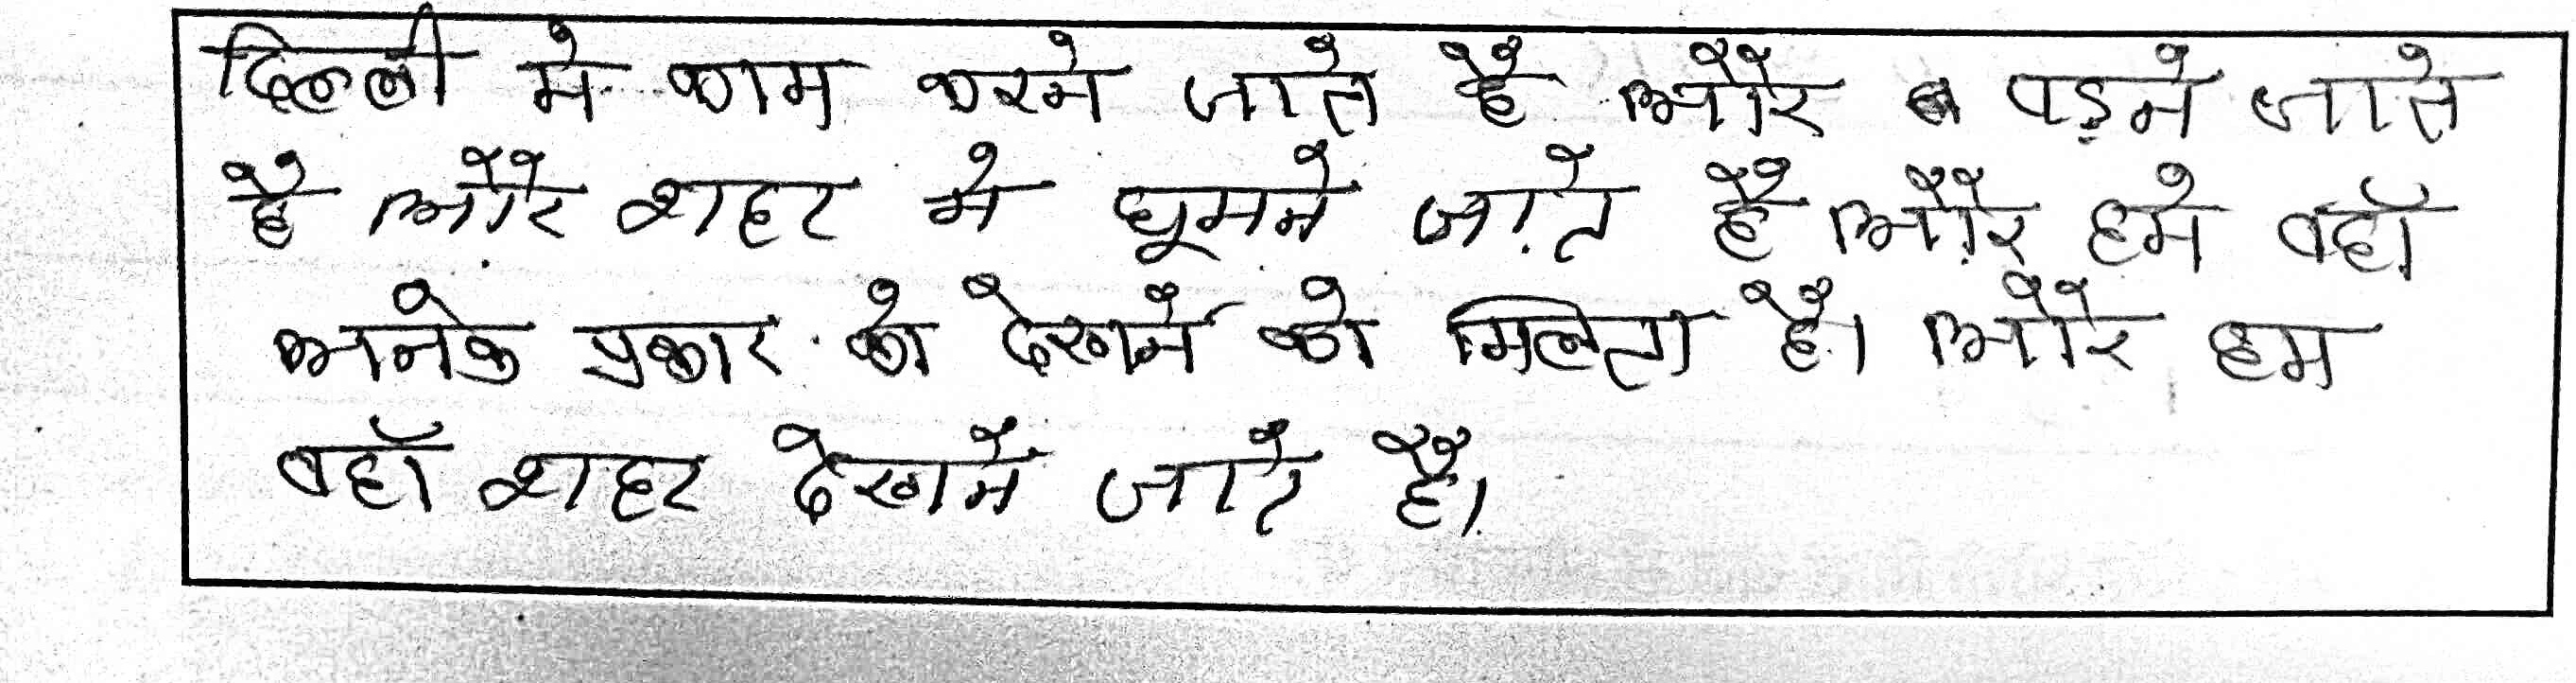 दिल्ली मे काम करने जाते है और पड़ने जाते
है और शहर मे घूमने जाते है और हमे वहाँ
अनेक प्रकार को देखने को मिलता है। और हम
वहाँ शहर देखने जाते है।